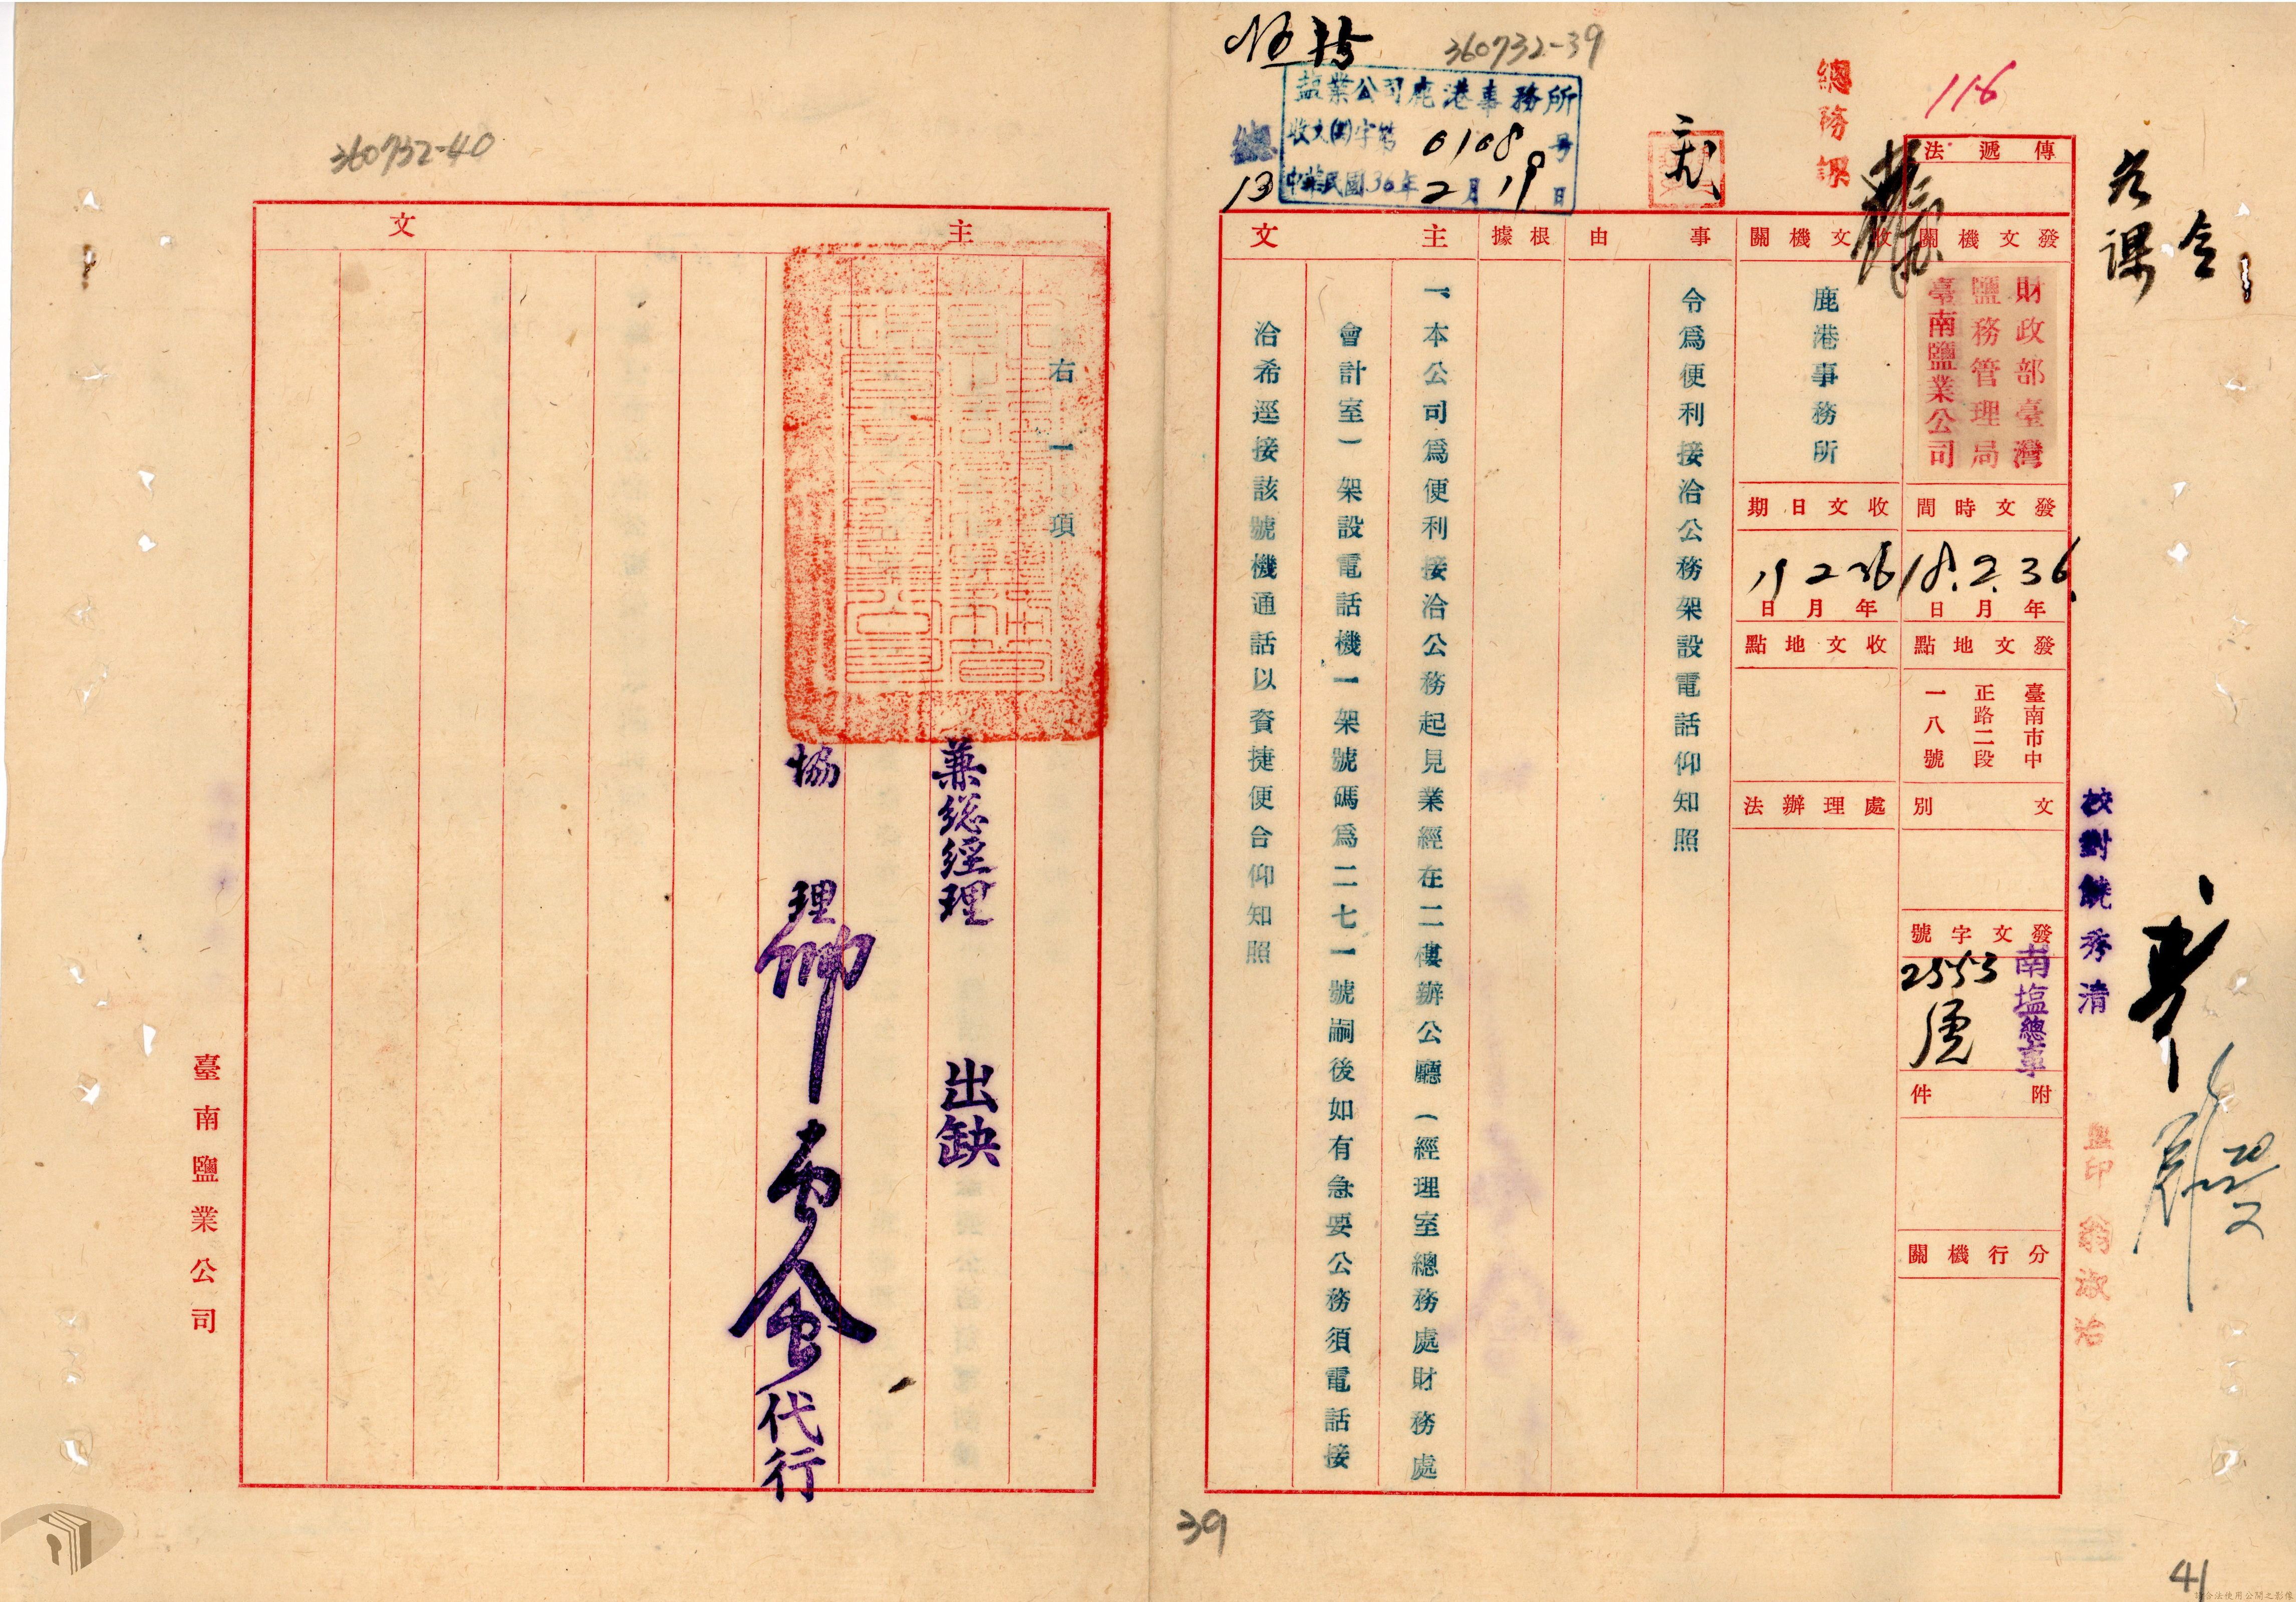 360732-39
116
總務課
鹽業公司鹿港事務所
收文(鹿)字第0108号
中華民國36年2月19日
13
傳遞法
各課
令
發文機關
財政部臺灣
鹽務管理局
臺南鹽業公司
發文時間
36.2.18.
年月日
發文地點
臺南市中
正路二段
一八號
文別
發文字號
南塩總事
2553
號
附件
分行機關
收文機關
鹿港事務所
收文日期
36 2 19
年月日
收文地點
處理辦法
事由
令爲便利接洽公務架設電話仰知照
根據
主文
一、本公司爲便利接洽公務起見業經在二樓辦公廳(經理室總務處財務處
會計室)架設電話機一架號碼爲二七一號嗣後如有急要公務須電話接
洽希逕接該號機通話以資捷便合仰知照
校對 饒秀清
監印 翁淑治
39
41
360732-40
主文
右一項
兼総經理 出缺
協理
代行
臺南鹽業公司